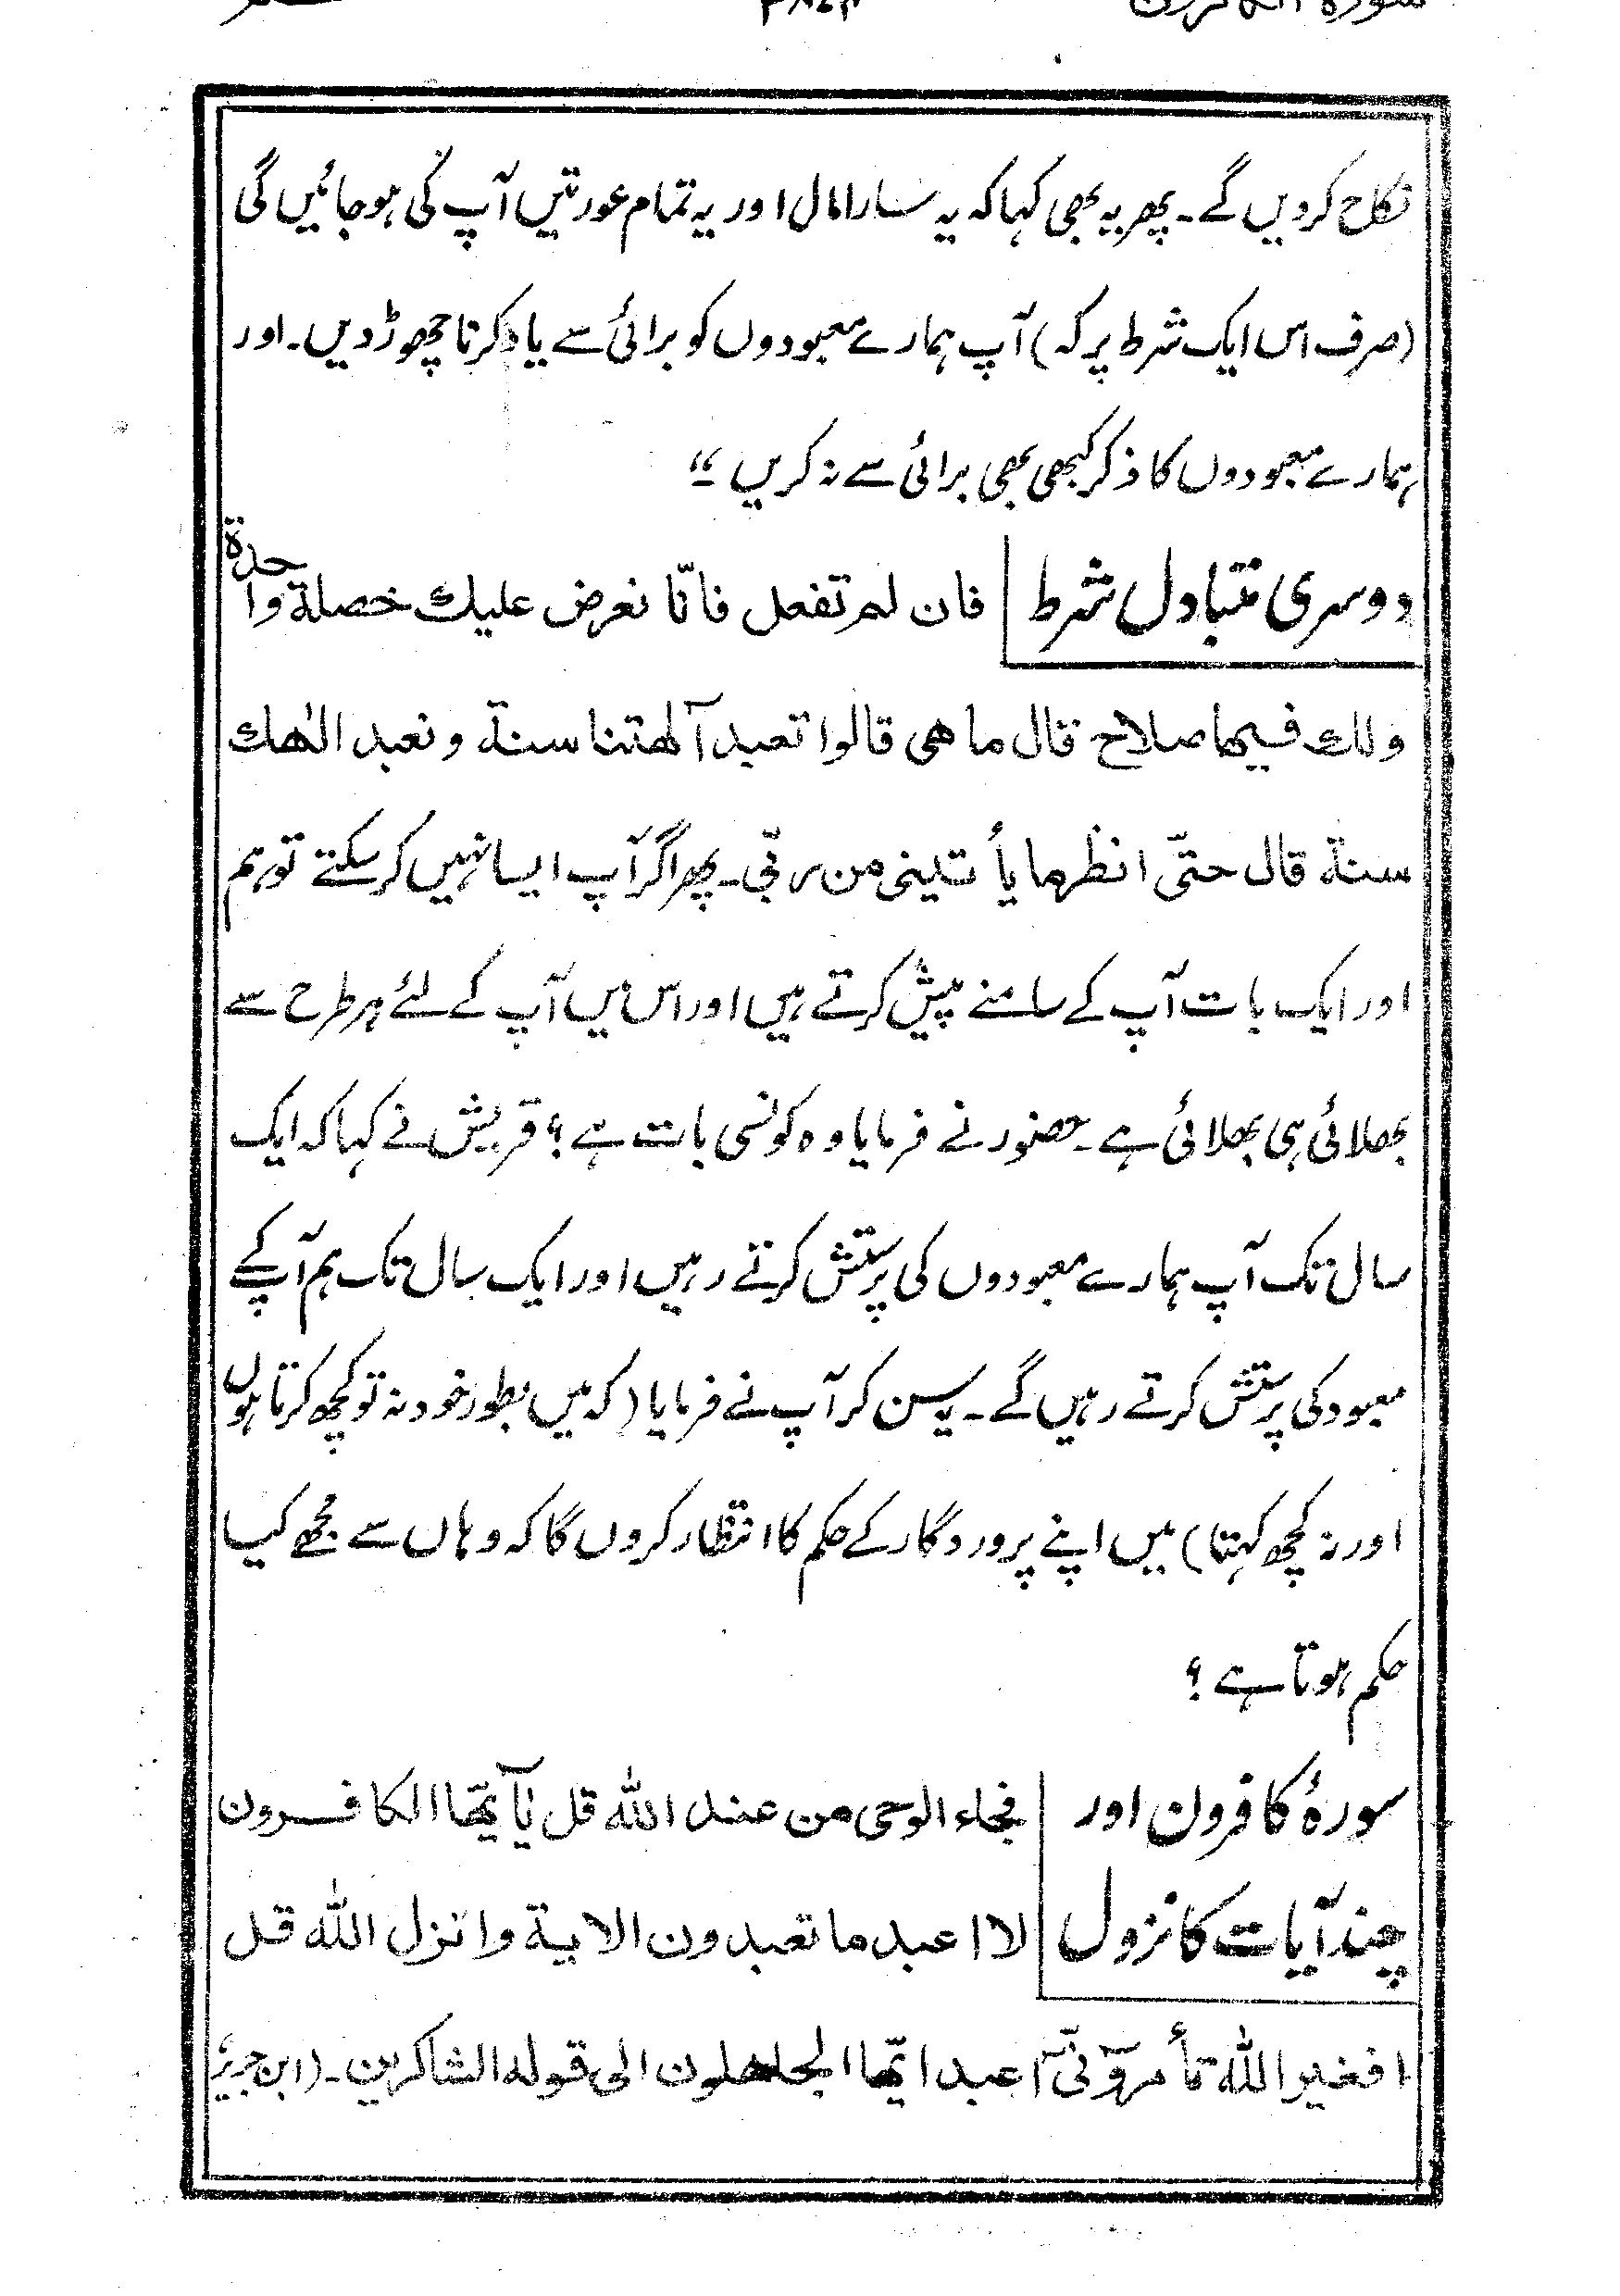 نکاح کردیں گے۔ پھر یہ بھی کہا کہ یہ سارا مال اور یہ تمام عورتیں آپ کی ہو جائیں گی
(صرف اس ایک شرط پر کہ) آپ ہمارے معبودوں کو برائی سے یاد کرنا چھوڑ دیں۔ اور
ہمارے معبودوں کا ذکر کبھی بھی برائی سے نہ کریں ۔“
دوسری متبادل شرط فان لم تفعل فانّا نعرض عليك خصلة واحدة
ولك فيها صلاح قال ما هي قالوا تعبد آلهتنا سنة ونعبد الٰهك
سنة قال حتّى انظر ما يأتيني من ربّي۔ پھر اگر آپ ایسا نہیں کر سکتے تو ہم
اور ایک بات آپ کے سامنے پیش کرتے ہیں اور اس میں آپ کے لئے ہر طرح سے
بھلائی ہی بھلائی ہے۔ حضور نے فرمایا وہ کونسی بات ہے؟ قریش نے کہا کہ ایک
سال تک آپ ہمارے معبودوں کی پرستش کرتے رہیں اور ایک سال تک ہم آپ کے
معبود کی پرستش کرتے رہیں گے۔ یہ سن کر آپ نے فرمایا (کہ میں بطور خود نہ تو کچھ کرتا ہوں
اور نہ کچھ کہتا) میں اپنے پروردگار کے حکم کا انتظار کروں گا کہ وہاں سے مجھے کیا
حکم ہوتا ہے؟
سورۂ کافرون اور فجاء الوحي من عند الله قل يٰآيّها الكافرون
چند آیات کا نزول لا اعبد ما تعبدون الاية وانزل الله قل
افغير الله تأمرونّي آعبد ايّها الجاهلون الى قوله الشاكرين۔ (ابن جریر